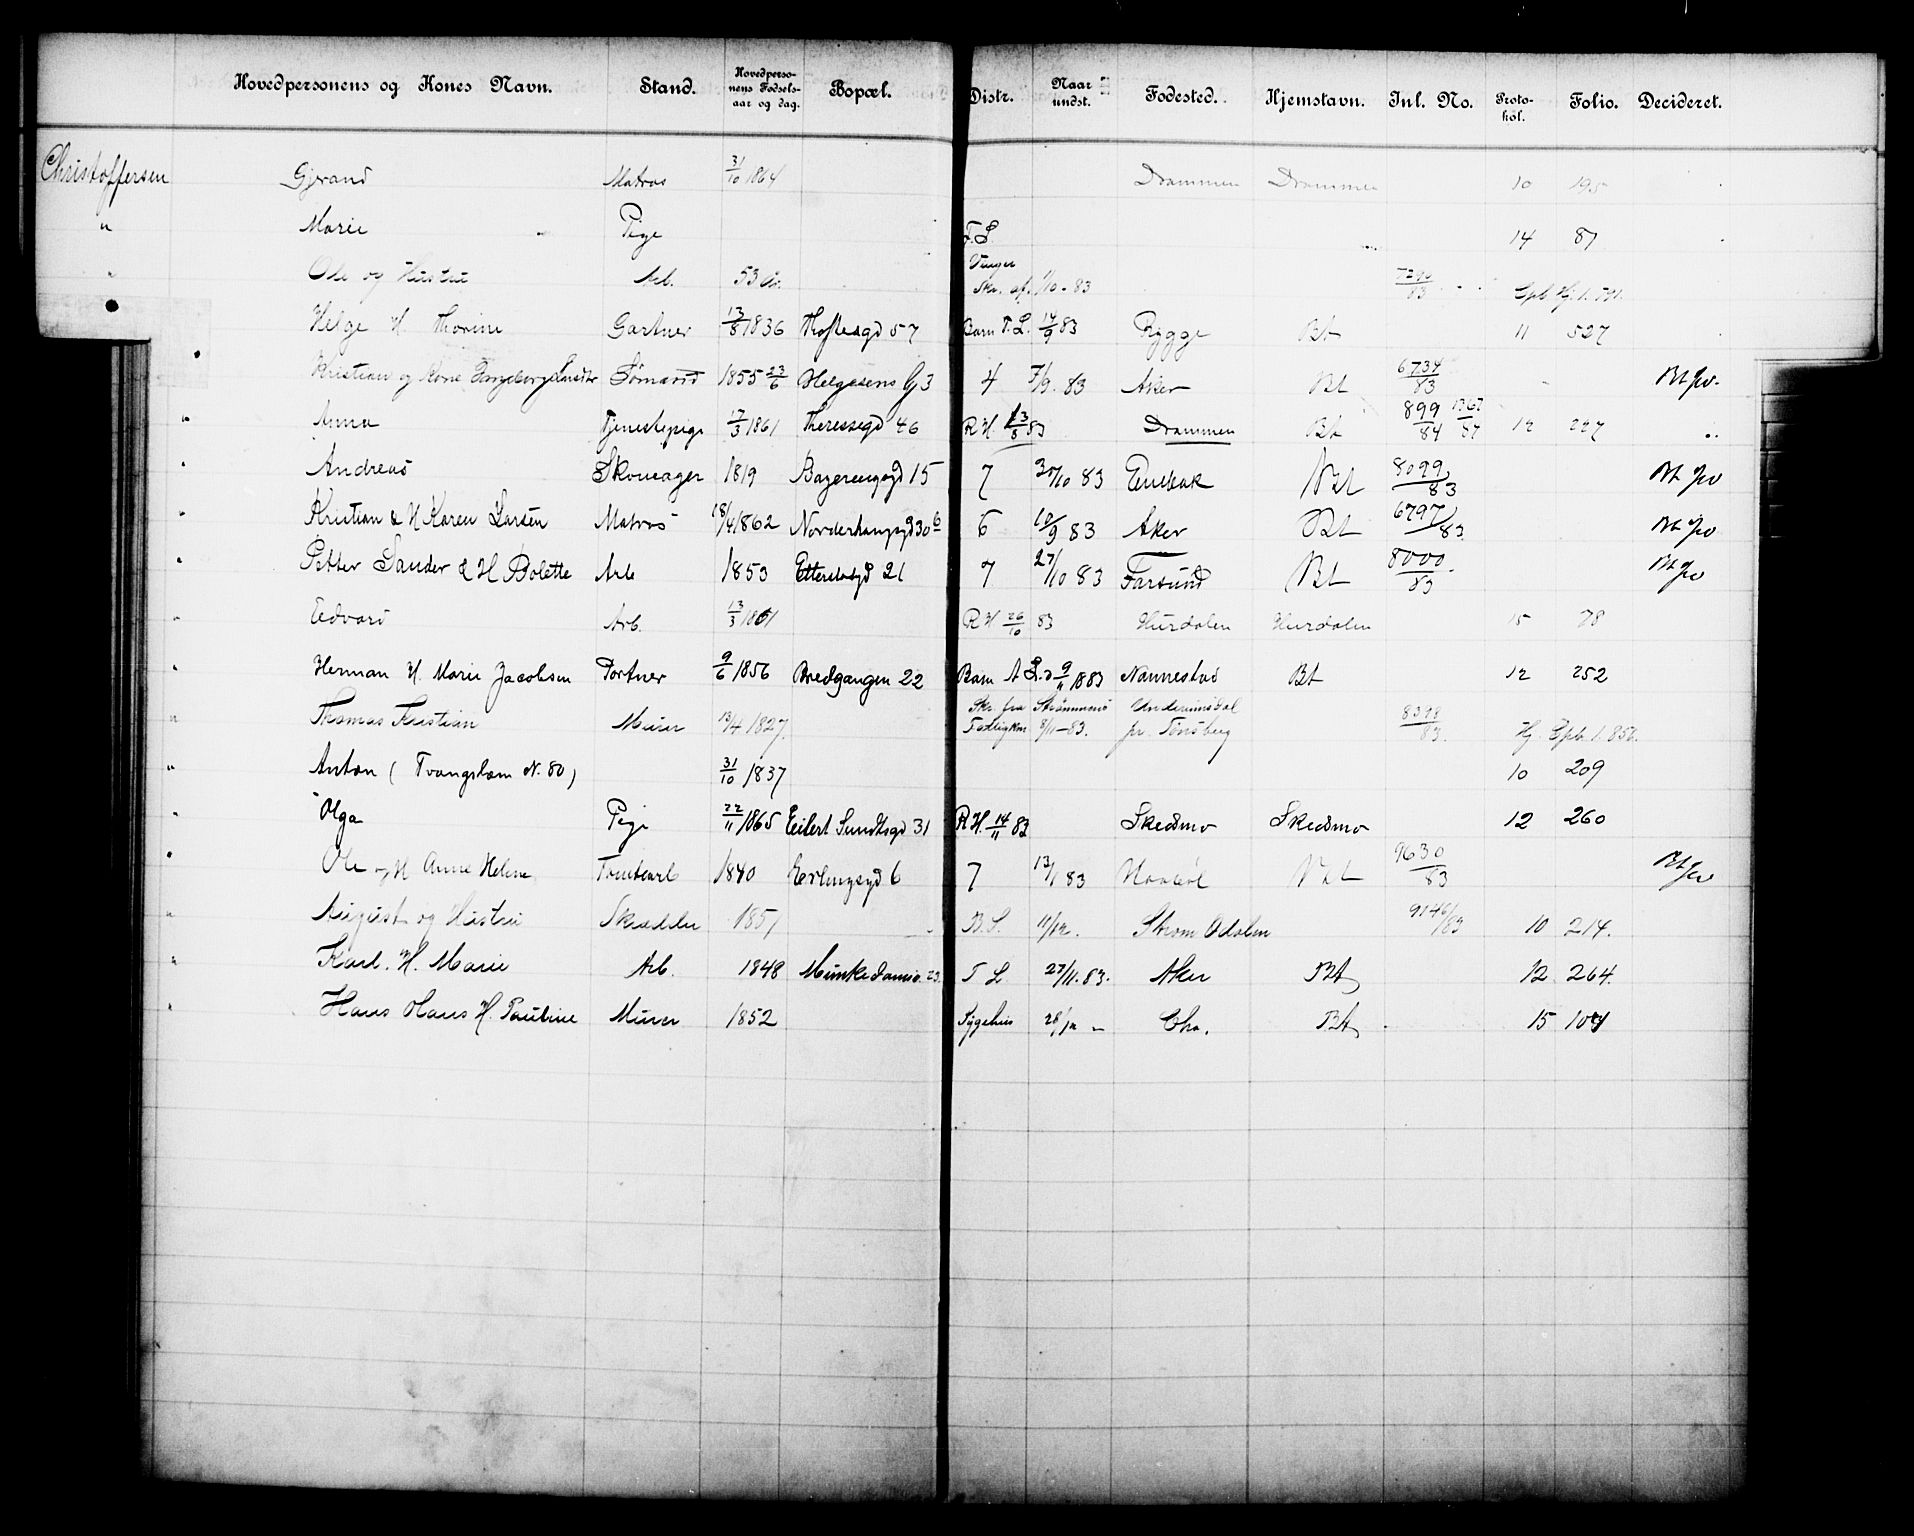 Hovedpersonens og Kones Navn. Stand. Hovedpersonens Fødselsaar og dag. Bopæl. Distr. Naar undst. Fødested. Hjemstavn. Inl. No. Protokol. Folio. Decideret.
Christoffersen Gjerand Matros 31/10 1864 Drammen Drammen 10 195
" Marie Pige F. L. 14 87
" Ole og Hustru Arb. 53 Aar Vinger Skr. af 1/10-83 7290/83
Helge H. Thorine Gartner 13/8 1836 Thoftesgd 57 Barn T. L. 14/9 83 Rygge Bt 11 527
Kristian og Kone Sømand 1855 23/6 Helgesens G 3 4 7/9. 83 Aker Bt 6734/83 Bt Jw.
" Anna Tjenestepige 17/3 1861 Theresesgd 46 R H 13/8 83 Drammen Bt 899/84 1367/87 12 227
" Andreas Skomager 1819 Bøyerengsgd 15 7 30/10 83 Enebak Bt 8099/83 Bt Jw
" Kristian & H Karen Larsen Matros 18/4 1862 Norderhaugsgd 30 b 6 10/9 83 Aker Bt 6797/83 Bt Jw
" Petter Sander & H Bolette Arb 1853 Etterstadgd 21 7 27/10 83 Farsund Bt 8000/83 Bt Jw
" Edvard Arb. 13/3 1861 R H 26/10 83 Hurdalen Hurdalen 15 78
" Herman H. Marie Jacobsen Portner 9/6 1856 Bredgangen 22 Barn A L. 9/11 1883 Nannestad Bt 12 252
" Thomas Kristian Murer 13/4 1827. Skr. fra Strømmens Fattigkm 8/11-83. pr. Tønsberg 8398/83. Hj. Cpb 1. 856.
" Anton (Tvangslem N. 80) 31/10 1837 10 209
" Olga Pige 22/11 1865 Eilert Sundtsgd 31 R H. 14/11 83 Skedsmo Skedsmo 12 260
" Ole og H Anne Helene Tomtearb 1840 Erlingsgd 6 7 13/1 83 Haabøl Bt 9630/83 Bt Jw
" August og Hustru Skrædder 1851 B. S. 11/12. Strøm Odalen 9146/83 10 214.
" Karl. H. Marie Arb. 1848 Munkedamsv. 23. T L. 27/11. 83. Aker Bt 12 264.
" Hans Hans H. Pauline Murer 1852 Sygehus 28/12 - Cha. Bt 15 104